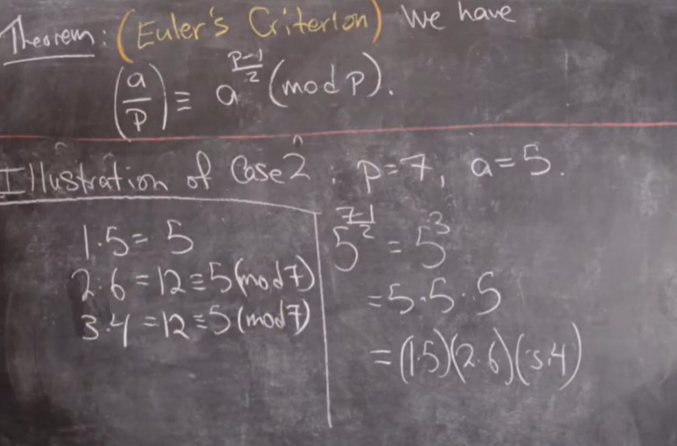 Theorem: (Euler's Criterion) We have
(a/p) ≡ a^((p-1)/2) (mod p).
Illustration of Case 2: p=7, a=5.
1·5=5
2·6=12≡5(mod 7)
3·4=12≡5(mod 7)
5^((7-1)/2) = 5^3
=5·5·5
=(1·5)(2·6)(3·4)